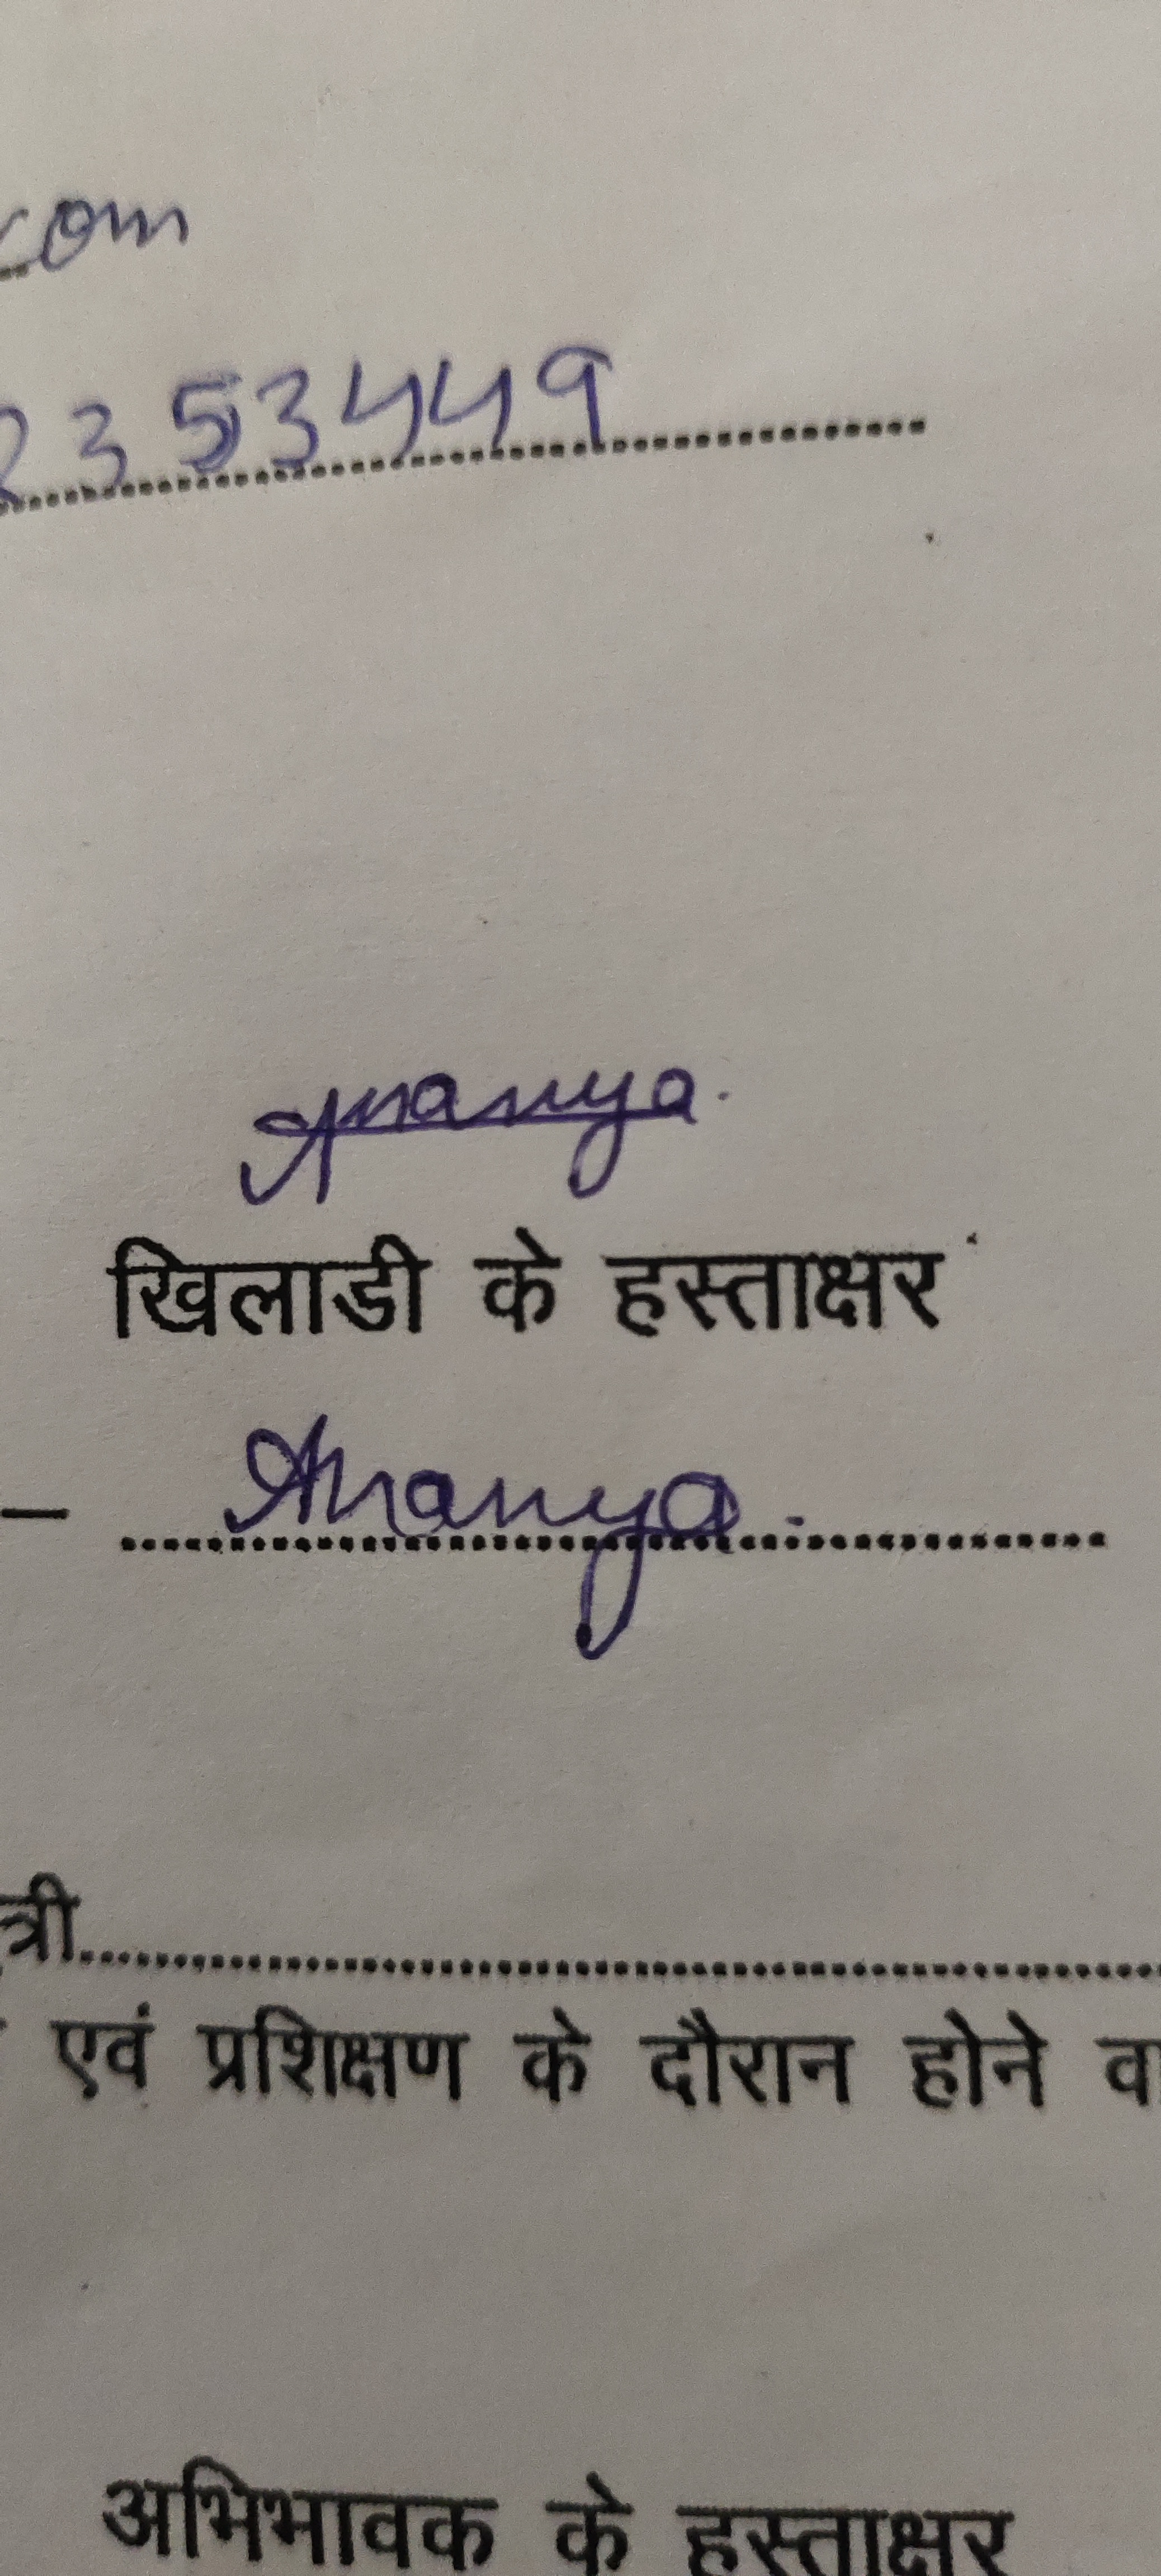 com
2353449
Ananya.
खिलाडी के हस्ताक्षर
– Ananya. ..........
त्री..........
एवं प्रशिक्षण के दौरान होने वा
अभिभावक के हस्ताक्षर